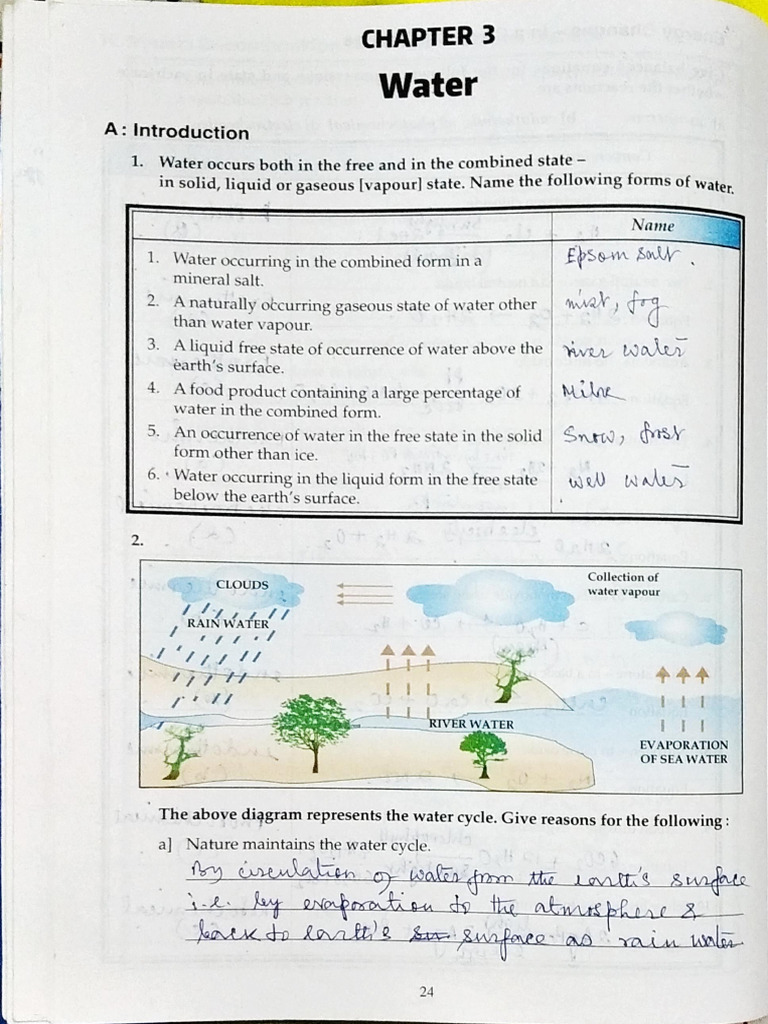 CHAPTER 3
Water
A: Introduction
1. Water occurs both in the free and in the combined state –
in solid, liquid or gaseous [vapour] state. Name the following forms of water.
Name
1. Water occurring in the combined form in a
mineral salt.
Epsom salt.
2. A naturally occurring gaseous state of water other
than water vapour.
mist, fog
3. A liquid free state of occurrence of water above the
earth's surface.
river water
4. A food product containing a large percentage of
water in the combined form.
Milk
5. An occurrence of water in the free state in the solid
form other than ice.
Snow, frost
6. Water occurring in the liquid form in the free state
below the earth's surface.
well water
2.
CLOUDS
RAIN WATER
Collection of
water vapour
RIVER WATER
EVAPORATION
OF SEA WATER
The above diagram represents the water cycle. Give reasons for the following :
a] Nature maintains the water cycle.
By circulation of water from the earth's surface
i.e. by evaporation to the atmosphere &
back to earth's surface as rain water
24